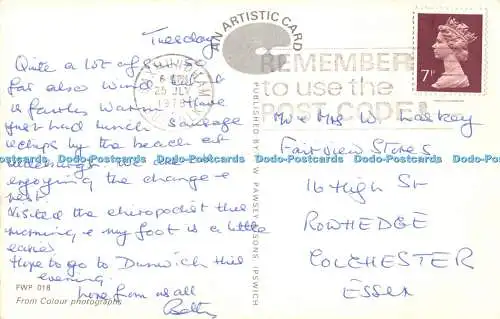 Tuesday
Quite a lot of sun so
far also wind
is fairly warm. Have
just had lunch sausage
& chips by the beach at
enjoying the change &
rest.
Visited the chiropodist this
morning & my foot is a little
easier
Hope to go to Dunwich this
evening.
love from us all
PWP 018
From Colour photographs
AN ARTISTIC CARD
PUBLISHED BY W PAWSEY & SONS, IPSWICH
25 JLY
REMEMBER
to use the
POST CODE!
7P
Mr & Mrs W. Laskey
Fairview Stores
16 High St
ROWHEDGE
COLCHESTER
ESSEX
Dodo-Postcards Dodo-Postcards Dodo-Postcards Dodo-Postcards Dodo-Postcards